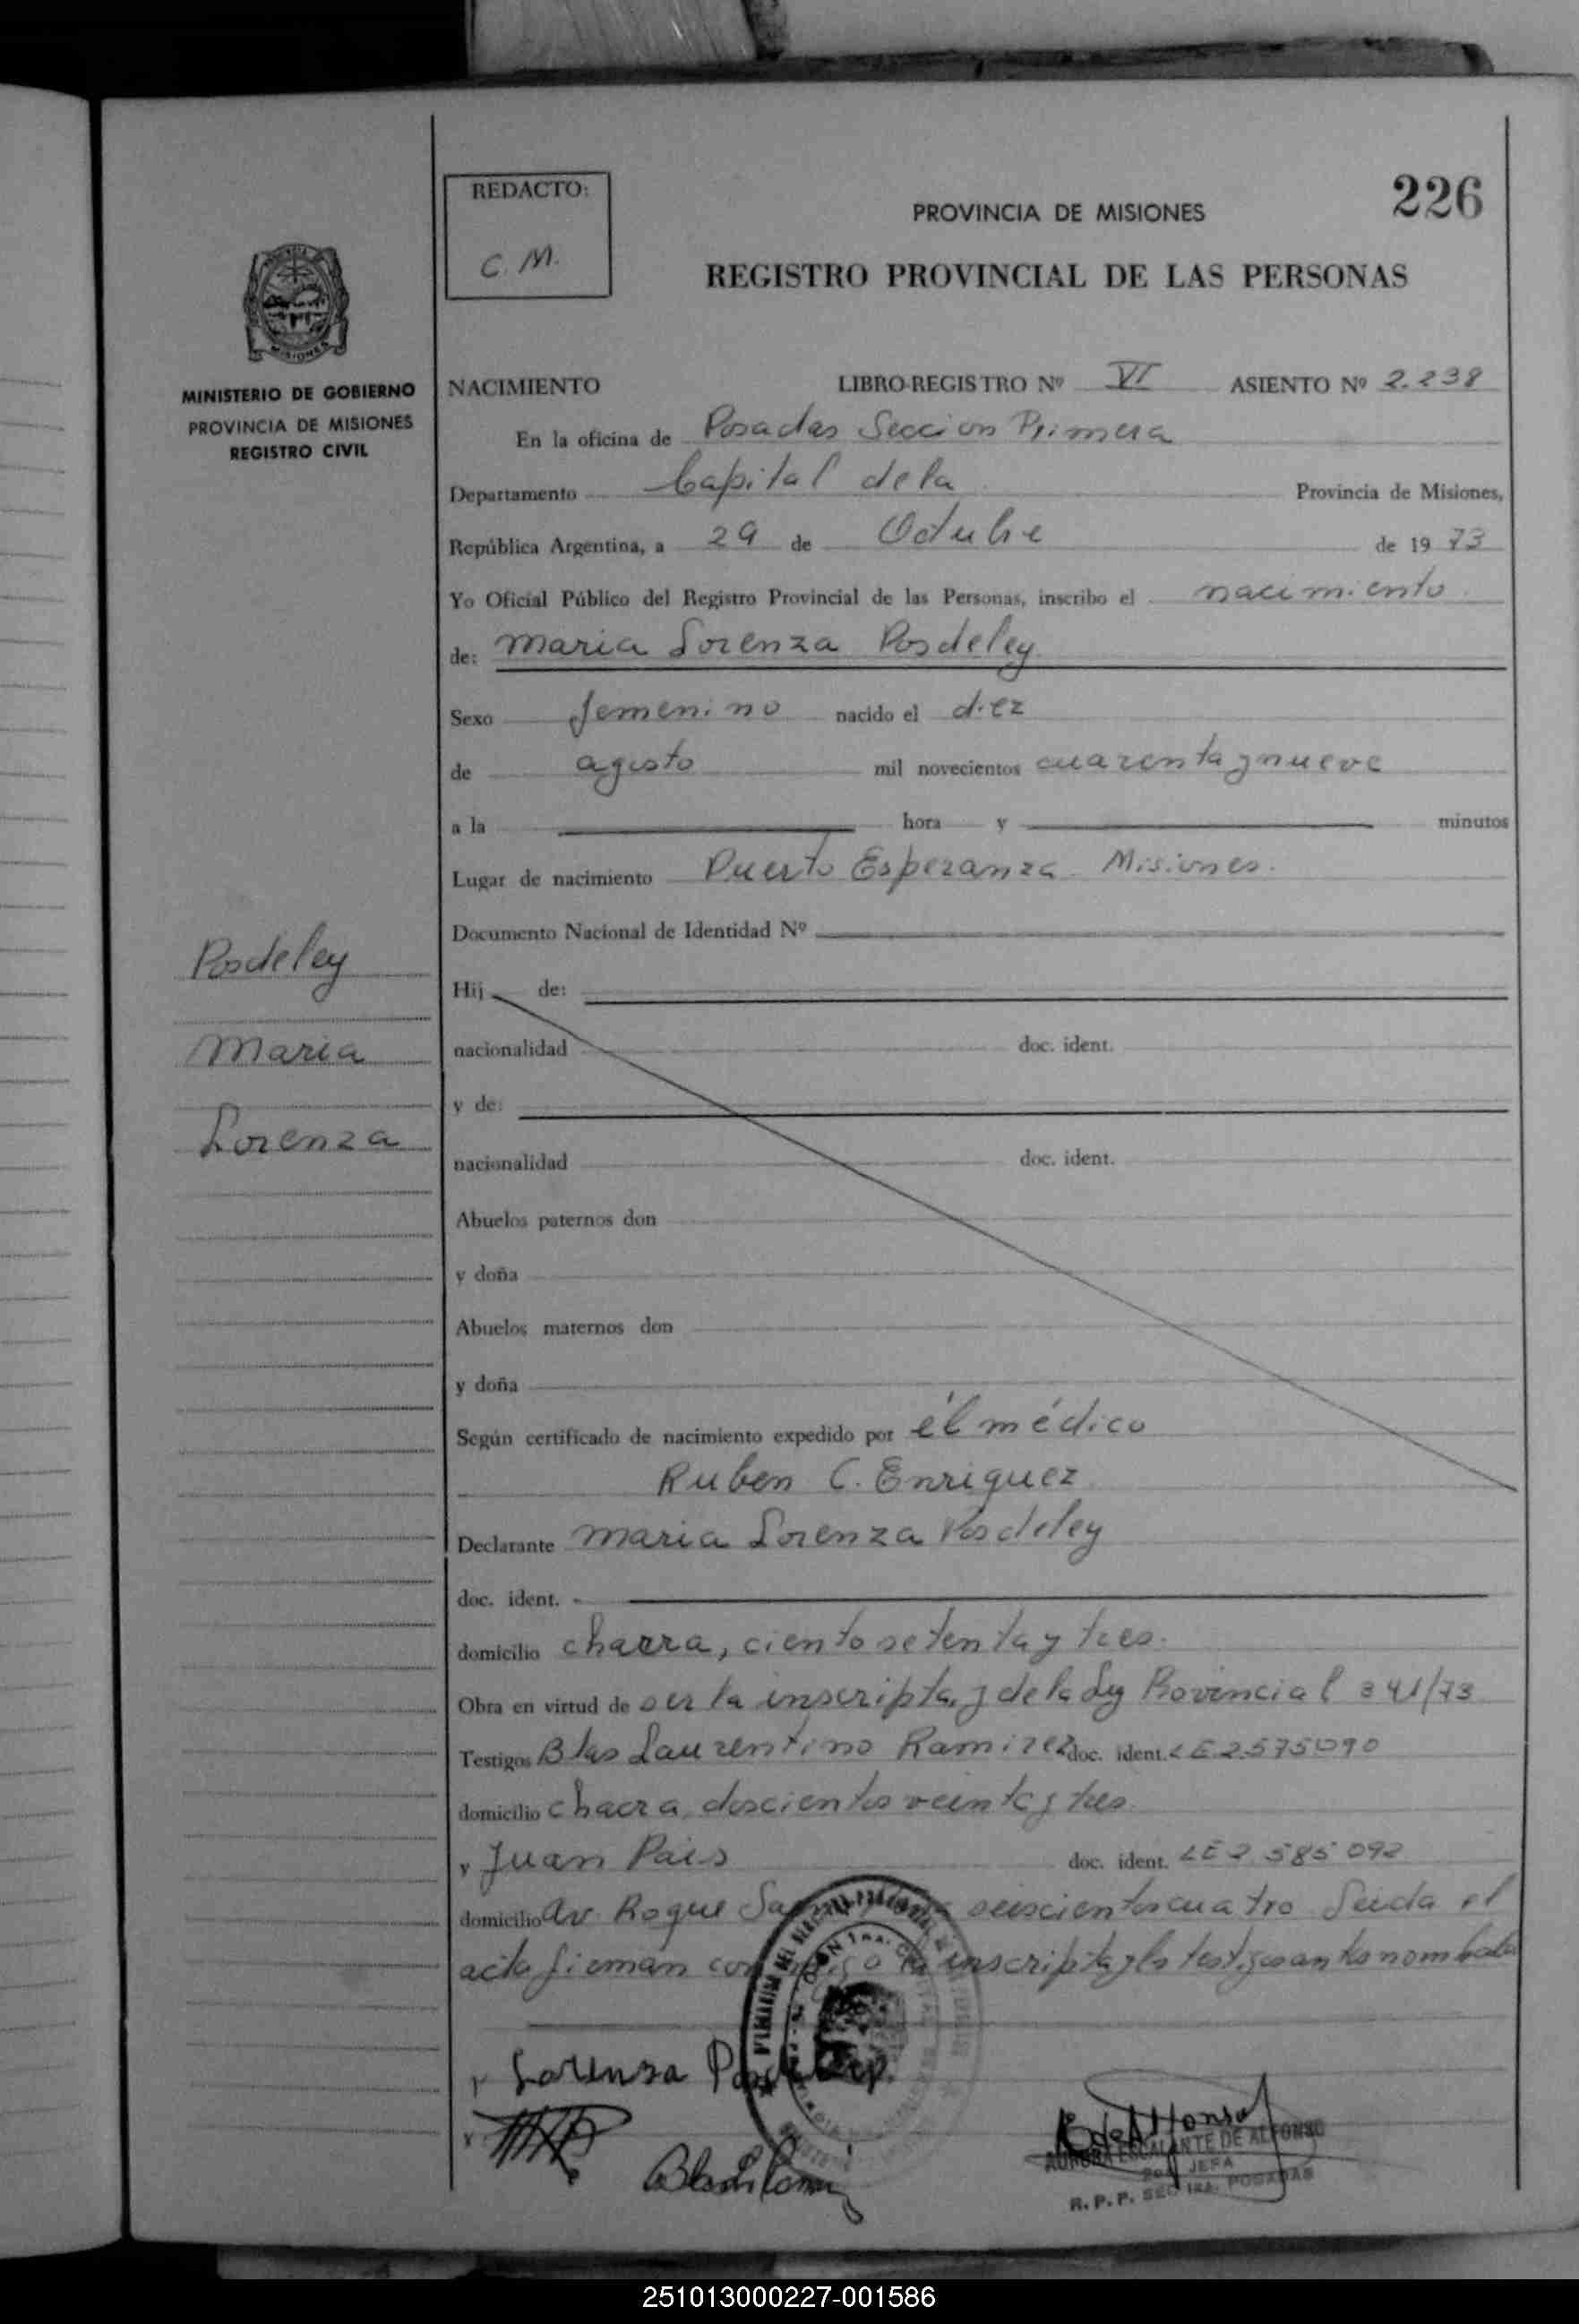 REDACTO:
C. M.
226
PROVINCIA DE MISIONES
REGISTRO PROVINCIAL DE LAS PERSONAS
MISIONES
MINISTERIO DE GOBIERNO
PROVINCIA DE MISIONES
REGISTRO CIVIL
NACIMIENTO LIBRO-REGISTRO Nº VI ASIENTO Nº 2.238
En la oficina de Posadas Seccion Primera
Departamento Capital de la Provincia de Misiones,
República Argentina, a 29 de Octubre de 1973
Yo Oficial Público del Registro Provincial de las Personas, inscribo el nacimiento
de: Maria Lorenza Posdeley
Sexo femenino nacido el diez
de agosto mil novecientos cuarenta y nueve
a la hora y minutos
Lugar de nacimiento Puerto Esperanza Misiones.
Documento Nacional de Identidad Nº
Posdeley
Maria
Lorenza
Hij de:
nacionalidad doc. ident.
y de:
nacionalidad doc. ident.
Abuelos paternos don
y doña
Abuelos maternos don
y doña
Según certificado de nacimiento expedido por él médico
Ruben C. Enriquez
Declarante Maria Lorenza Posdeley
doc. ident.
domicilio chacra, ciento setenta y tres.
Obra en virtud de ser la inscripta, y de la Ley Provincial 341/73
Testigos Blas Laurentino Ramirez doc. ident. LE 2575090
domicilio chacra doscientos veinte y tres
y Juan Pais doc. ident. LE 2.585 092
domicilio Av. Roque seiscientos cuatro Leida el
acta firman la inscripta y los testigos antes nombrados
Lorenza Posdeley
AURORA ESCALANTE DE ALFONSO
JEFA
R. P. P. SEC 1RA. POSADAS
251013000227-001586